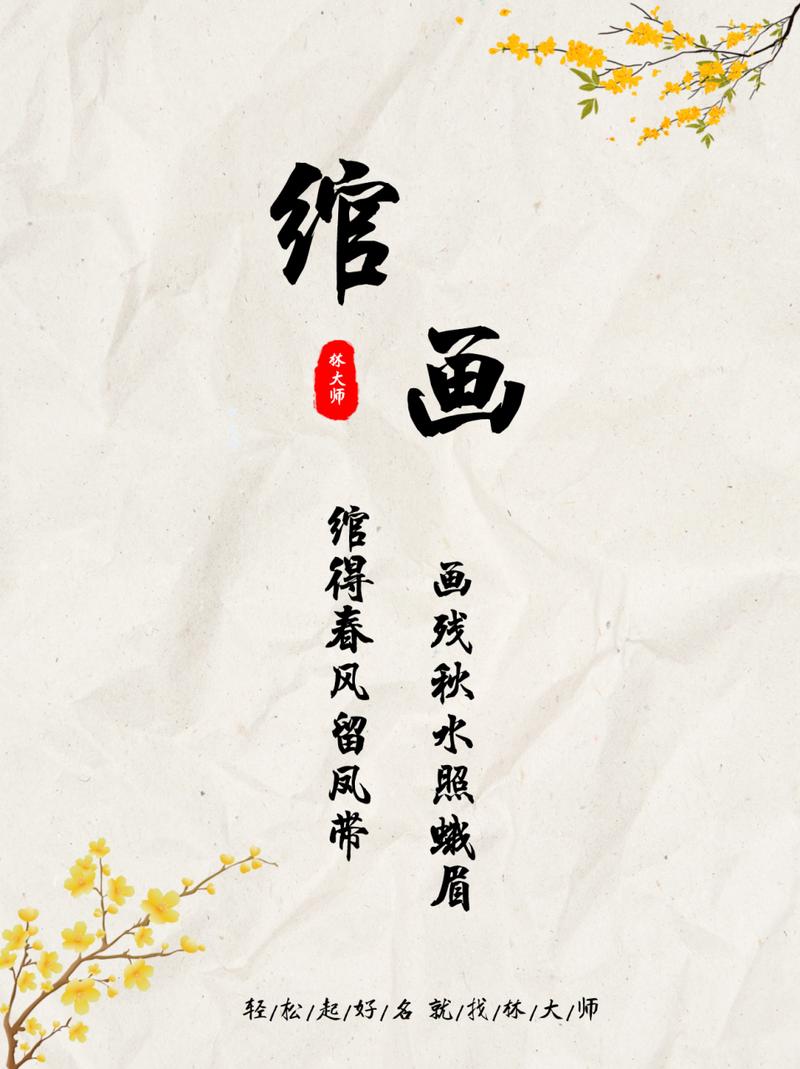 绾
画
林大师
绾得春风留凤带
画残秋水照蛾眉
轻/松/起/好/名 就/找/林/大/师